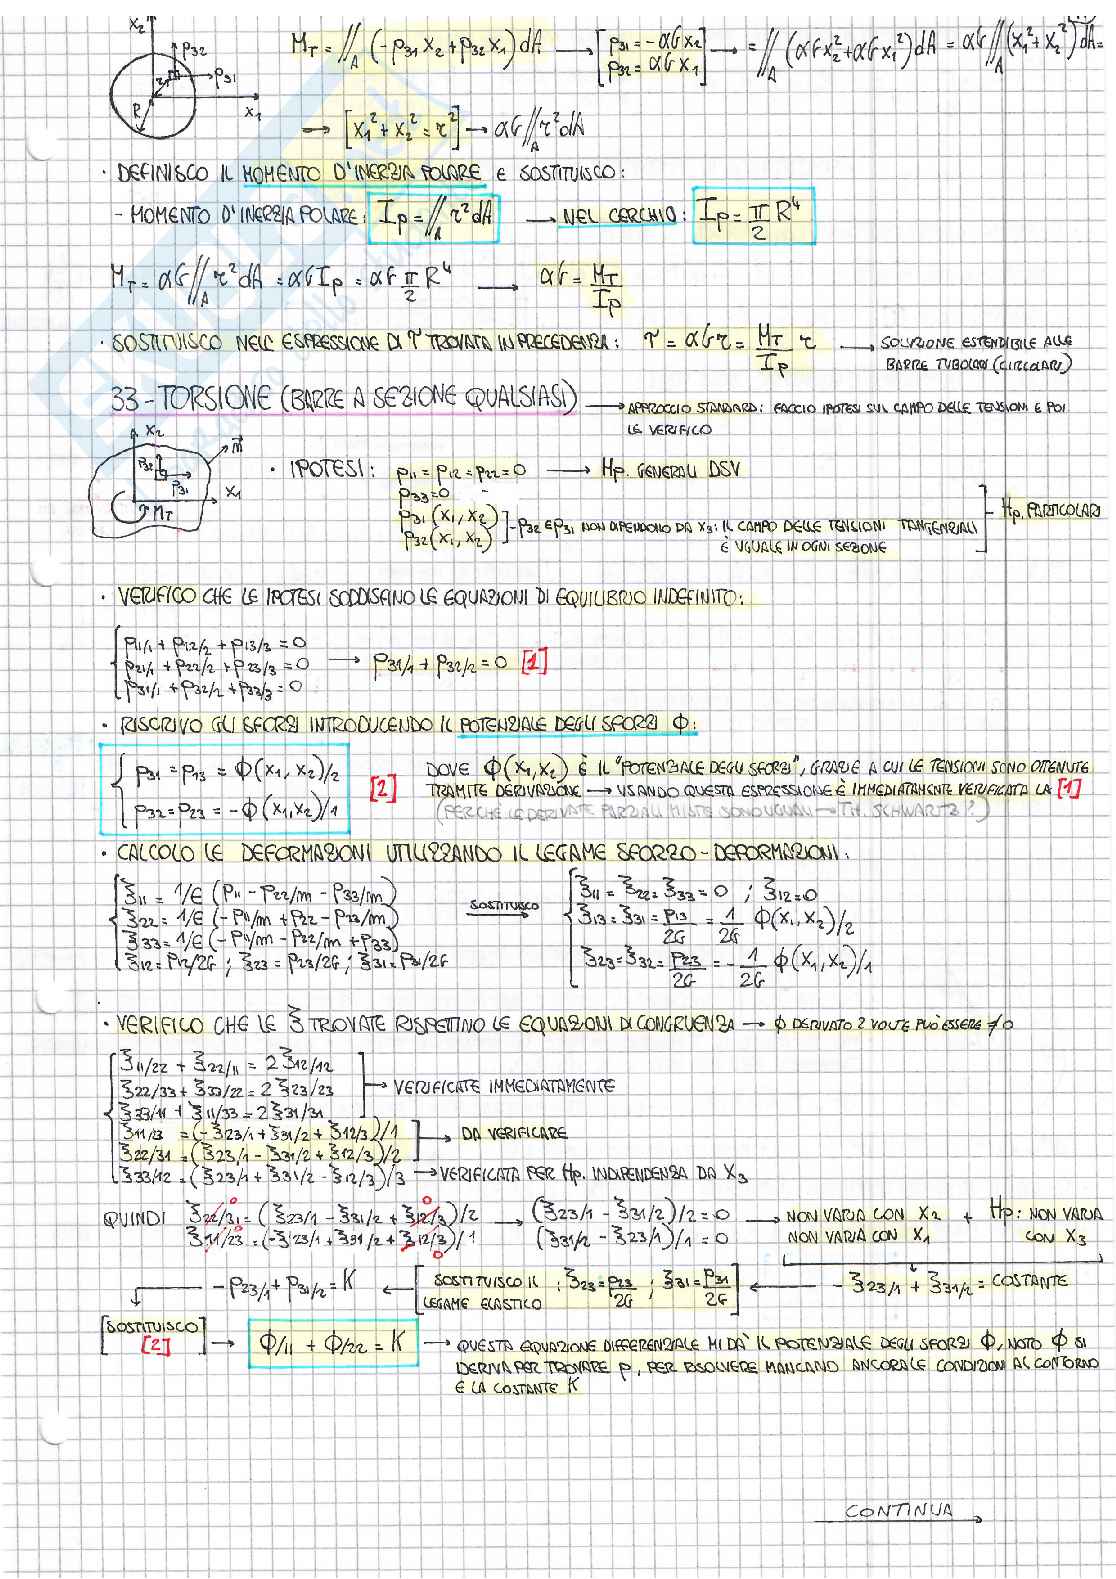 x2
p32
p31
r
R
x1
MT = ∬A (-p31 x2 + p32 x1) dA → [p31 = -αG x2
p32 = αG x1] → = ∬A (αG x2² + αG x1²) dA = αG ∬A (x1² + x2²) dA =
→ [x1² + x2² = r²] → αG ∬A r² dA
· DEFINISCO IL MOMENTO D'INERZIA POLARE E SOSTITUISCO:
- MOMENTO D'INERZIA POLARE: Ip = ∬A r² dA → NEL CERCHIO: Ip = π/2 R⁴
MT = αG ∬A r² dA = αG Ip = αG π/2 R⁴ → αG = MT/Ip
· SOSTITUISCO NELL'ESPRESSIONE DI τ TROVATA IN PRECEDENZA: τ = αGr = MT/Ip r → SOLUZIONE ESTENDIBILE ALLE
BARRE TUBOLARI (CIRCOLARI)
33 - TORSIONE (BARRE A SEZIONE QUALSIASI) → APPROCCIO STANDARD: FACCIO IPOTESI SUL CAMPO DELLE TENSIONI E POI
LE VERIFICO
x2
p32
p31
x1
MT
· IPOTESI: p11 = p12 = p22 = 0 → Hp. GENERALI DSV
p33 = 0
p31 (x1, x2)
p32 (x1, x2) ] - p32 E p31 NON DIPENDONO DA x3: IL CAMPO DELLE TENSIONI TANGENZIALI
È UGUALE IN OGNI SEZIONE
Hp. PARTICOLARI
· VERIFICO CHE LE IPOTESI SODDISFINO LE EQUAZIONI DI EQUILIBRIO INDEFINITO:
p11/1 + p12/2 + p13/3 = 0
p21/1 + p22/2 + p23/3 = 0 → p31/1 + p32/2 = 0 [1]
p31/1 + p32/2 + p33/3 = 0
· RISCRIVO GLI SFORZI INTRODUCENDO IL POTENZIALE DEGLI SFORZI Φ:
p31 = p13 = Φ(x1, x2)/2
p32 = p23 = -Φ(x1, x2)/1
[2]
DOVE Φ(x1, x2) È IL "POTENZIALE DEGLI SFORZI", GRAZIE A CUI LE TENSIONI SONO OTTENUTE
TRAMITE DERIVAZIONE → USANDO QUESTA ESPRESSIONE È IMMEDIATAMENTE VERIFICATA LA [1]
(PERCHÉ LE DERIVATE PARZIALI MISTE SONO UGUALI → TH. SCHWARTZ?)
· CALCOLO LE DEFORMAZIONI UTILIZZANDO IL LEGAME SFORZO-DEFORMAZIONI:
ξ11 = 1/E (p11 - p22/m - p33/m)
ξ22 = 1/E (-p11/m + p22 - p33/m)
ξ33 = 1/E (-p11/m - p22/m + p33)
ξ12 = p12/2G ; ξ23 = p23/2G ; ξ31 = p31/2G
SOSTITUISCO →
ξ11 = ξ22 = ξ33 = 0 ; ξ12 = 0
ξ13 = ξ31 = p13/2G = 1/2G Φ(x1, x2)/2
ξ23 = ξ32 = p23/2G = -1/2G Φ(x1, x2)/1
· VERIFICO CHE LE ξ TROVATE RISPETTINO LE EQUAZIONI DI CONGRUENZA → Φ DERIVATO 2 VOLTE PUÒ ESSERE ≠ 0
ξ11/22 + ξ22/11 = 2 ξ12/12
ξ22/33 + ξ33/22 = 2 ξ23/23 → VERIFICATE IMMEDIATAMENTE
ξ33/11 + ξ11/33 = 2 ξ31/31
ξ11/23 = (-ξ23/1 + ξ31/2 + ξ12/3)/1 → DA VERIFICARE
ξ22/31 = (ξ23/1 - ξ31/2 + ξ12/3)/2
ξ33/12 = (ξ23/1 + ξ31/2 - ξ12/3)/3 → VERIFICATA PER Hp. INDIPENDENZA DA x3
QUINDI ξ22/31 = (ξ23/1 - ξ31/2 + ξ12/3)/2 → (ξ23/1 - ξ31/2)/2 = 0 → NON VARIA CON x2 + Hp: NON VARIA
ξ11/23 = (-ξ23/1 + ξ31/2 + ξ12/3)/1 (ξ31/2 - ξ23/1)/1 = 0 NON VARIA CON x1 CON x3
-p23/1 + p31/2 = K ← [SOSTITUISCO IL LEGAME ELASTICO ; ξ23 = p23/2G ; ξ31 = p31/2G] ← -ξ23/1 + ξ31/2 = COSTANTE
[SOSTITUISCO [2]] → Φ/11 + Φ/22 = K → QUESTA EQUAZIONE DIFFERENZIALE MI DÀ IL POTENZIALE DEGLI SFORZI Φ, NOTO Φ SI
DERIVA PER TROVARE p, PER RISOLVERE MANCANO ANCORA LE CONDIZIONI AL CONTORNO
E LA COSTANTE K
CONTINUA